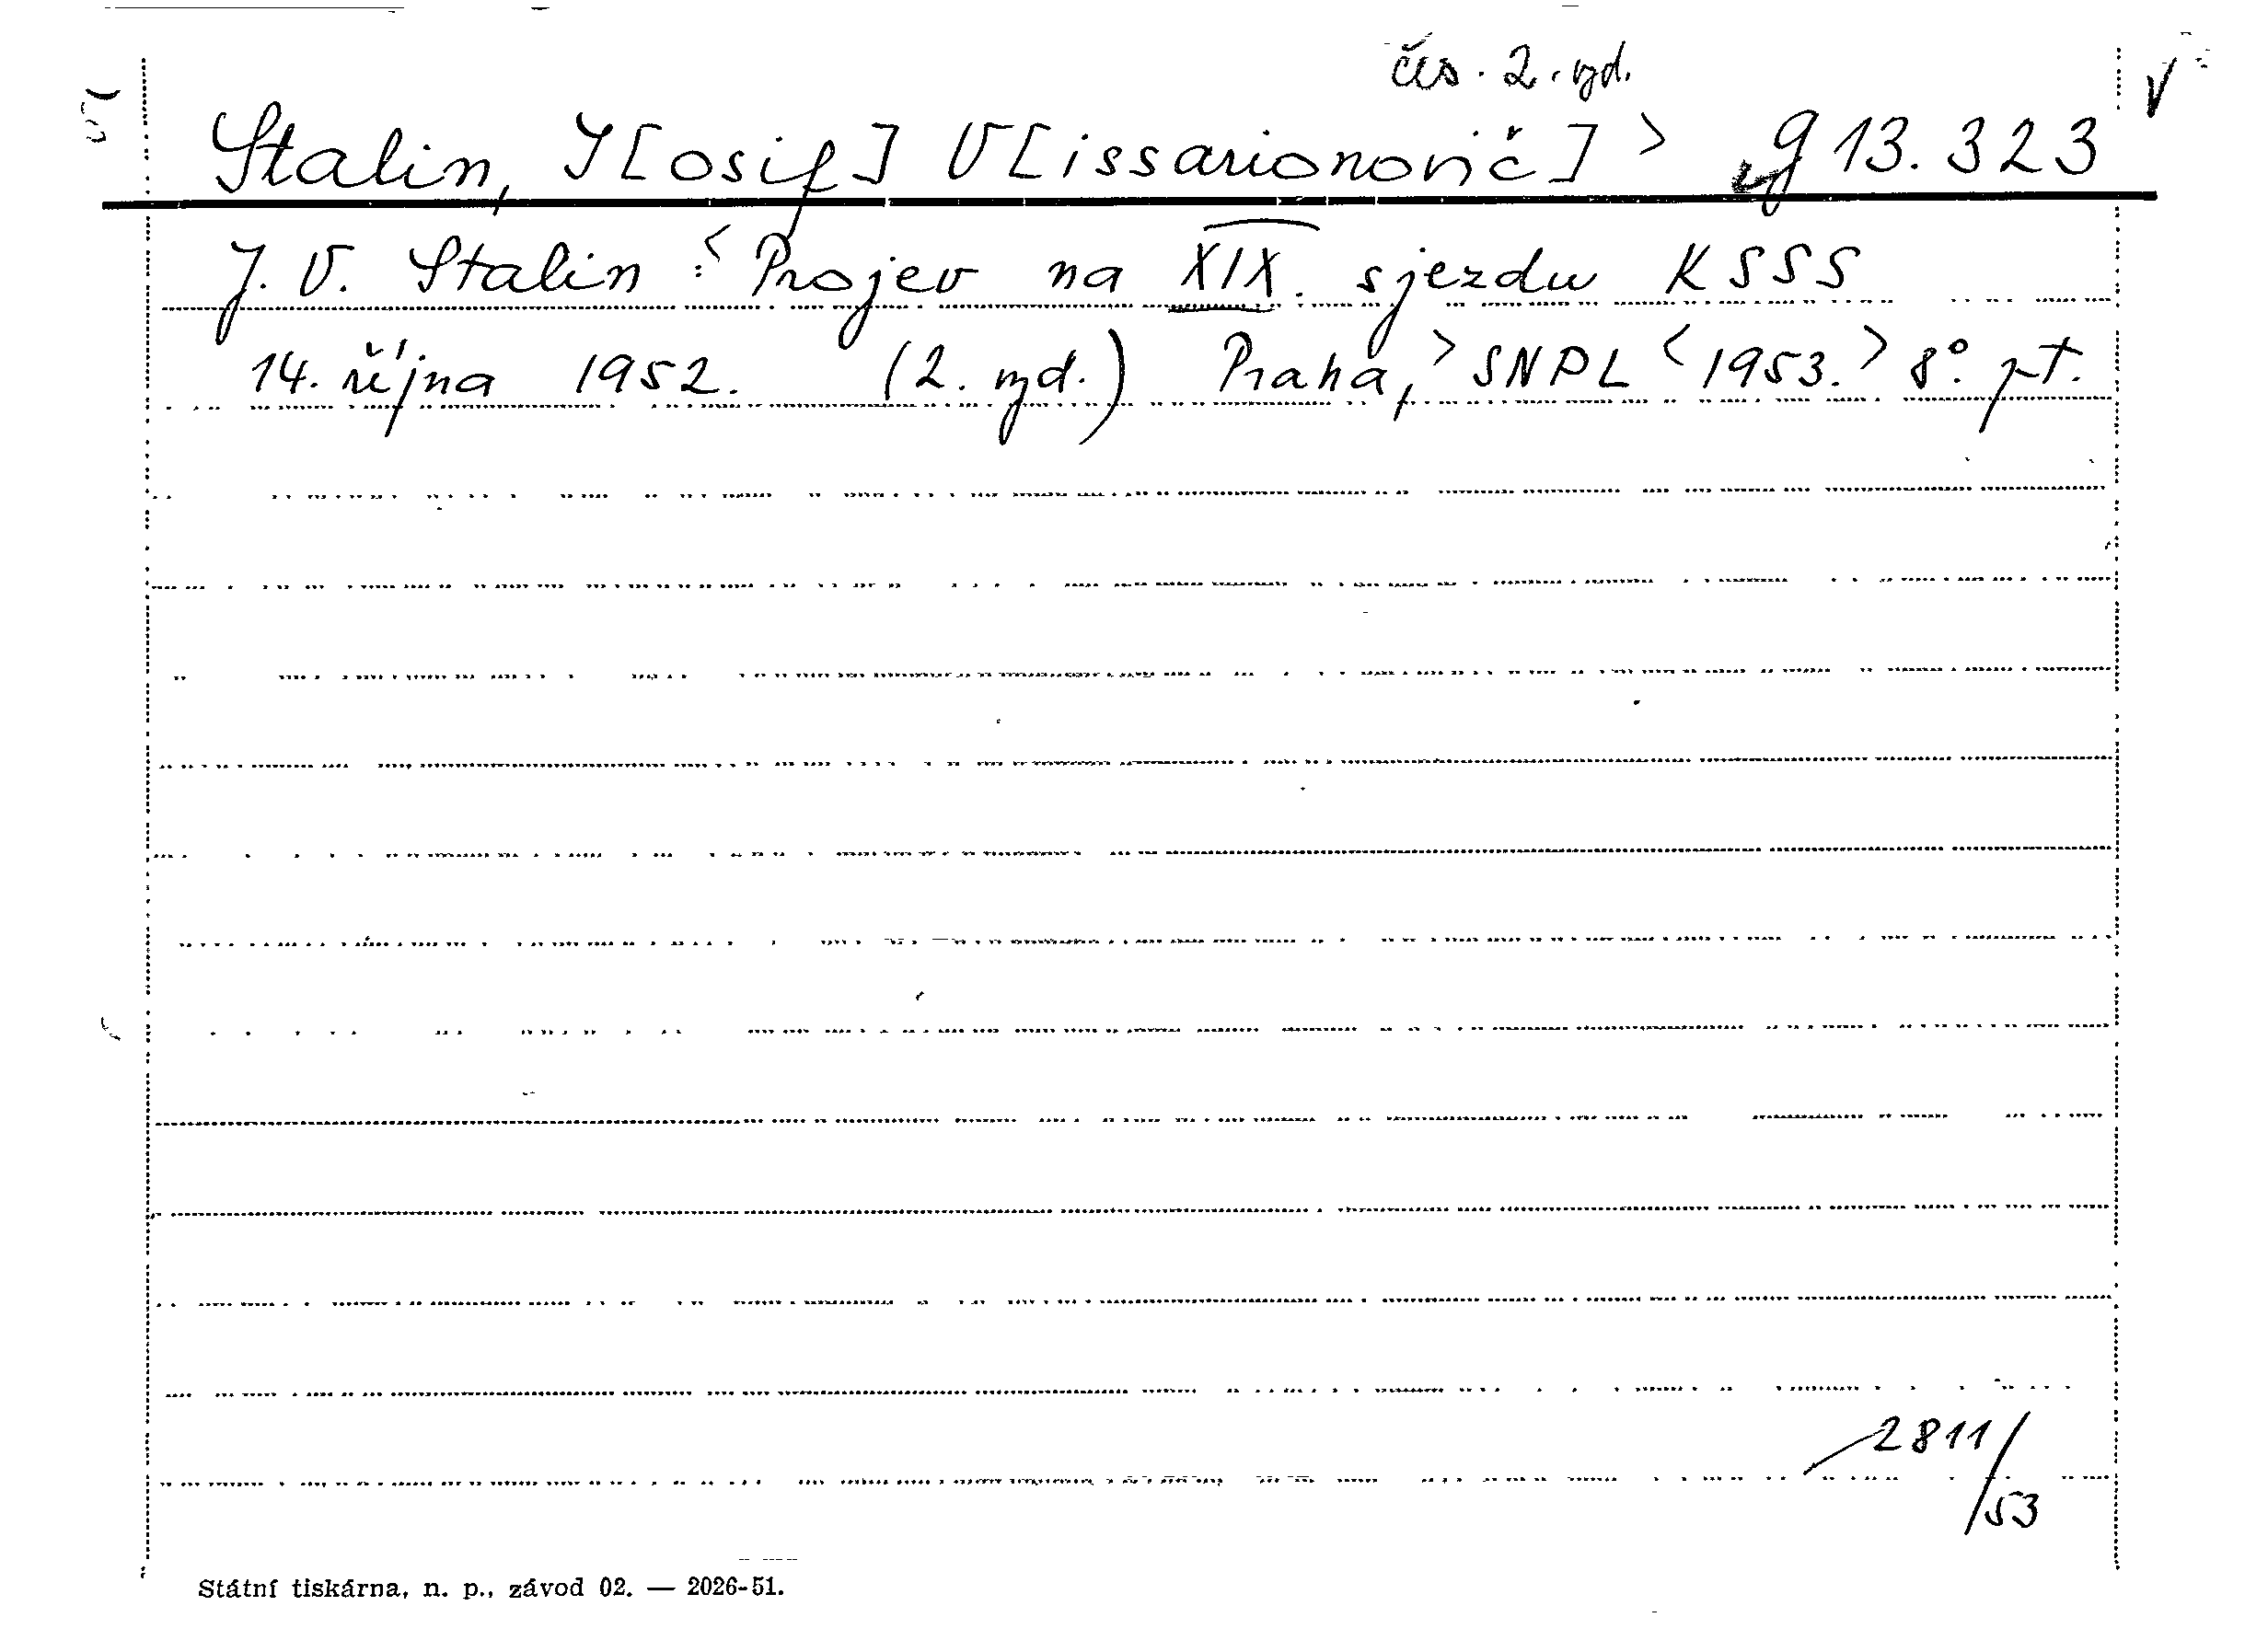 čes. 2. vyd.
Stalin, J[osif] V[issarionovič] > g 13.323
J. V. Stalin : < Projev na XIX. sjezdu KSSS
14. října 1952. (2. vyd.) Praha, > SNPL < 1953. > 8°. pt.
2811/53
Státní tiskárna, n. p., závod 02. — 2026-51.